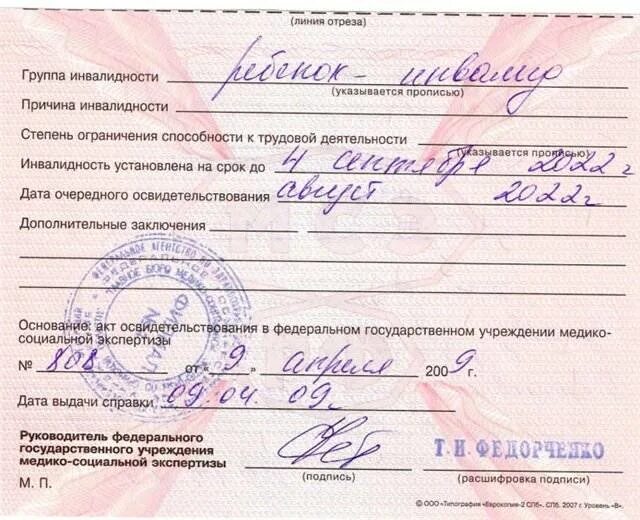 (линия отреза)
Группа инвалидности ребенок - инвалид
(указывается прописью)
Причина инвалидности
Степень ограничения способности к трудовой деятельности
(указывается прописью)
Инвалидность установлена на срок до 4 сентября 2022 г
Дата очередного освидетельствования август 2022 г
Дополнительные заключения
Основание: акт освидетельствования в федеральном государственном учреждении медико-
социальной экспертизы
№ 808 от "9" апреля 2009 г.
Дата выдачи справки 09.04.09г.
Руководитель федерального
государственного учреждения
медико-социальной экспертизы
Т.И.ФЕДОРЧЕНКО
(подпись) (расшифровка подписи)
М. П.
© ООО «Типография «Еврокопия-2 СПб». СПб. 2007 г. Уровень «В».